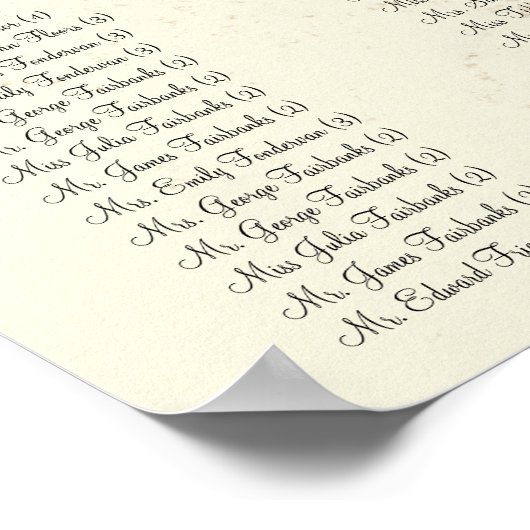 (4)
Floors (3)
Fondervan (3)
Emily Fondervan (3)
George Fairbanks (2)
Mr. George Fairbanks (2)
Miss Julia Fairbanks (2)
Mr. James Fairbanks (2)
Mrs. Emily Fondervan (3)
Mrs. George Fairbanks (2)
Mr. George Fairbanks (2)
Miss Julia Fairbanks (2)
Mr. James Fairbanks (2
Mr. Edward
Mrs.
Miss